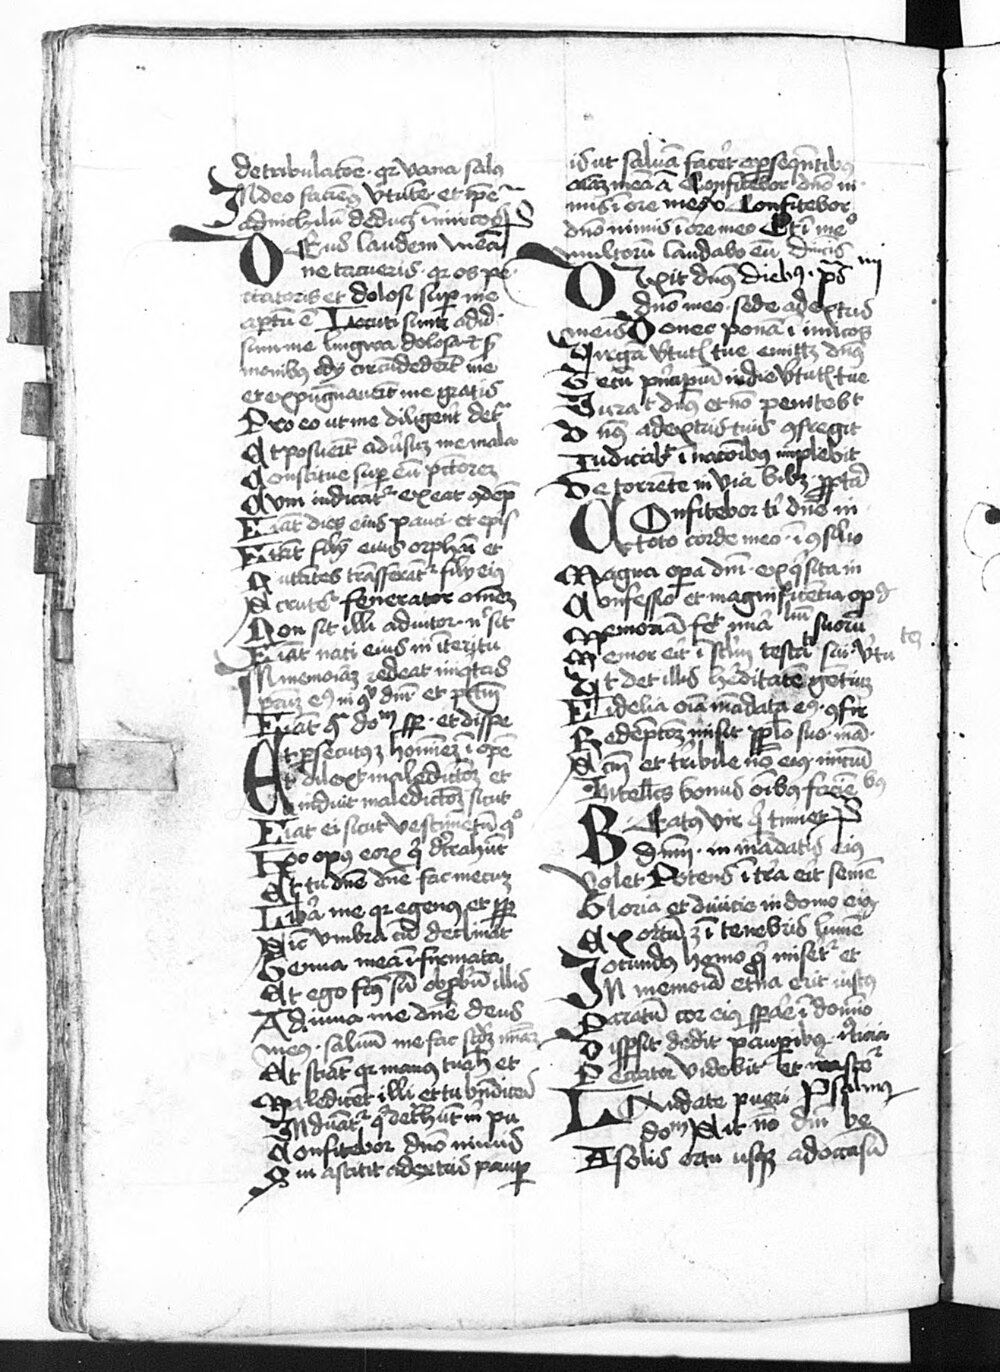 de tribulatõe · qr vana salꝰ
In deo faciemꝰ v̓tutē · et ip̄e
ad nichilū deducꝫ inimicos
Deus laudem meā
ne tacueris · qr os pec
catoris et dolosi sup̱ me
aptū ē Locuti sunt adūs
sum me lingwa dolosa et s̓
monibꝰ odij circūdederūt me
et expugnauerūt me gratis
Pro eo ut me diliger̄nt det̓
Et posuerūt adūsus me mala
Constitue sup̱ eū pctorem
Cum iudicat̓ exeat ꝯdep̄
Fiāt dies eius pauci · et ep̄is
Fiāt filij eius orphāi et
Nutātes trāsferāt̓ filij eiꝰ
Scrutet̓ fenerator omēꝫ
Non sit illi adiutor · n̓ sit
Fiāt nati eius in īteritū
In memoriaꝫ redeat iniq̓tas
Fiat
Et p̱secutus hoīeꝫ īopē
Et dilexit maledictōeꝫ et
Et induit maledictōeꝫ sicut
Fiat ei sicut vestimētū q̊
Hoc opꝰ eorꝝ q̓ det̓hūt
Et tu dn̄e dn̄e fac mecum
Lib̓a me qr egenꝰ et pp̱
Sic vmbra cū declinat
Genua mea īfirmata
Et ego fcꝰ sū obp̱briū illis
Adiuua me dn̄e deus
meus · saluū me fac scd̓ꝫ mīaꝫ
Et sciāt qr manꝰ tua h̓ et
Maledicēt illi et tu bn̄dices
Induāt̓ q̓ det̓hūt m̓ pu
Confitebor dn̄o nimis
Qui astitit a dextris paup̱
is ut saluā facer̓ a p̱seqn̄tibꝰ
aīaꝫ meā Confitebor dn̄o ni
mis ī ore meo Confitebor
dn̄o nimis ī ore meo Et ī me̊
multorū laudabo eū
Dixit dn̄s diebꝰ · p̄s
dn̄o meo sede a dextris
meis Donec ponā inimicos
Virgā v̓tutꝭ tue emittꝫ dn̄s
Tecū p̓ncipiū in die v̓tutꝭ tue
Iurauit dn̄s et nō penitebt
Dn̄s a dextris tuis ꝯfregit
Iudicabt ī nacōibꝰ implebit
De torrēte in via bibꝫ ppt̓a
Confitebor ti dn̄e in
toto corde meo · ī ꝯsilio
Magna op̱a dn̄i · exq̓sita in
Confessio et magnificētia opꝰ
Memoriā fec̓ mīra liū suorū
Memor erit ī sclm testātī sui v̓tu teꝫ
Vt det illis h̓editatē gētiū
Fidelia oīa mādata eiꝰ ꝯfir
Redēptōeꝫ misit pplo suo mā
Scm̄ et t̓ribile nō eiꝰ initiū
Intellcs bonus oībus faciētibꝰ
Beatꝰ vir q̓ timet P̄s
dn̄m · in mādatis eiꝰ
volet Potens ī t̓ra erit semē
Gloria et diuicie in domo eiꝰ
Exortū ē ī tenebris lumē
Iocundꝰ homo q̓ miseret̓ et
In memoria et̓na erit iustꝰ
Paratū cor eiꝰ sp̱ar̓ ī domīo
Disp̱sit dedit paup̱ibꝰ · iusticia
Peccator videbit et irascet̓
Laudate pueri Psalmꝰ
dom Sit nō dn̄i be
A solis ortu usqꝫ ad occasū